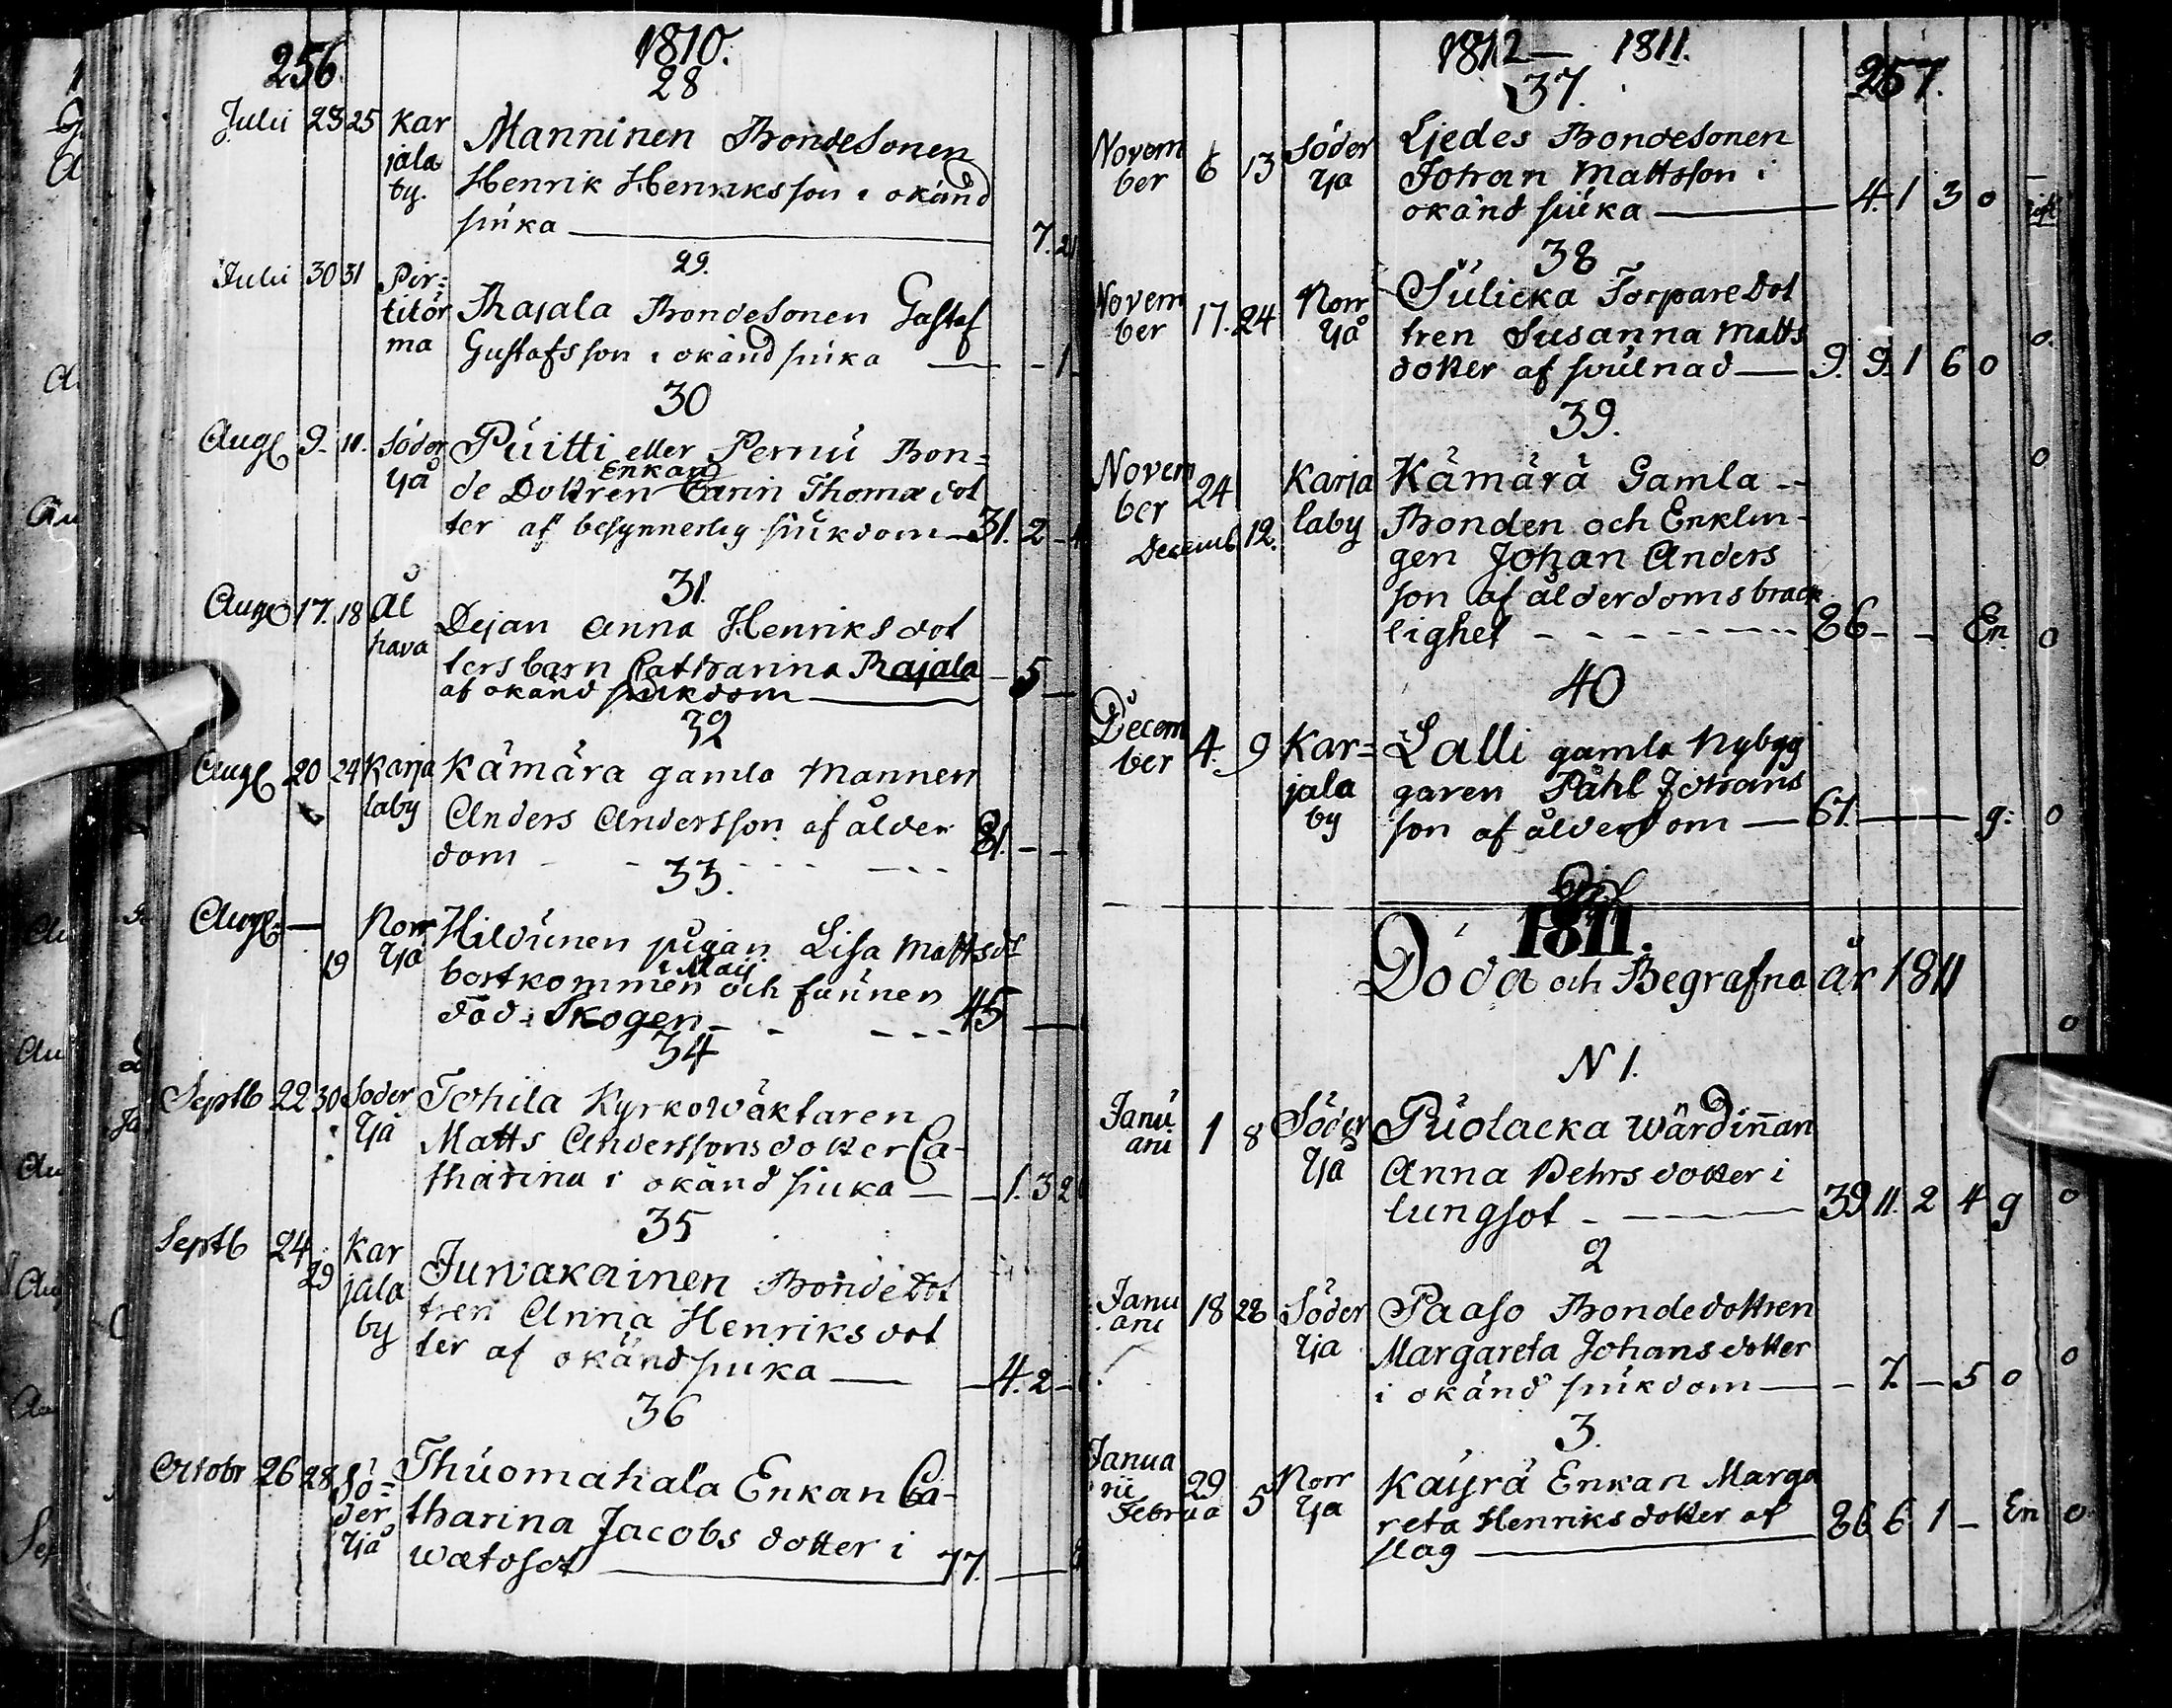 256.
1810.
28
Julii 23 25 Kar
jala
by.
Manninen Bondesonen
Henrik Henriksson i okänd
siuka 7. 21
29.
Julii 30 31 Pir=
titör
ma
Rajala Bondesonen Gustaf
Gustafsson i okänd siuka - 1
30
Aug 9. 11. Söder
Yjå
Puitti eller Pernu Bon=
Enkan
de Dottren Carin Thomædot
ter af besynnerlig siukdom 31. 2
31.
Aug 17. 18 Al
hava
Dejan Anna Henriksdot
ters barn Catharina Rajala
af okänd siukdom - 5
32
Aug 20 24 Karja
laby
Kämärä gamla Mannen
Anders Andersson af ålder
dom 81. - -
33.
Aug - 19 Norr
Yjå
Hildunen pigan Lisa Mattsdt
i Maij
bortkommen och funnen
död i Skogen 45
34
Septb 22 30 Söder
Yjå
Tohila Kyrkowäktaren
Matts Anderssons dotter Ca-
tharina i okänd siuka - 1. 3 2
35
Septb 24 29 Kar
jala
by
Jurvakainen Bonde Dot
tren Anna Henriksdot
ter af okänd siuka - 4. 2 -
36
Octobr 26 28 Sö=
der
Yjå
Thuomahala Enkan Ca-
tharina Jacobs dotter i
watosot 77.
1812 - 1811.
257.
37.
Novem
ber 6 13 Söder
Yjå
Ljedes Bondesonen
Johan Mattsson i
okänd siuka 4. 1 3 0
38
Novem
ber 17. 24 Norr
Yjå
Sulicka Torpare Dot
tren Susanna Matts
dotter af svulnad 9. 9. 1 6 0
39.
Novem
ber 24
Decemb 12.
Karja
laby
Kämärä Gamla
Bonden och Enklin-
gen Johan Anders
son af ålderdoms bräck
lighet 86 - - En
40
Decem
ber 4. 9 Kar=
jala
by
Lalli gamla Nybygg
garen Påhl Johans
son af ålderdom 67. g:
1811.
Döda och Begrafna år 1811
N 1.
Janu
arii 1 8 Söder
Yjå
Puolacka Wärdinnan
Anna Pehrs dotter i
lungsot 39 11. 2 4 g
2
Janu
arii 18 28 Söder
Yjå
Paaso Bondedottren
Margareta Johans dotter
i okänd siukdom - 7. - 5 0
3.
Janua
rii 29
Februa 5 Norr
Yjå
Käyrä Enkan Marga
reta Henriks dotter af
slag 86 6 1 - En